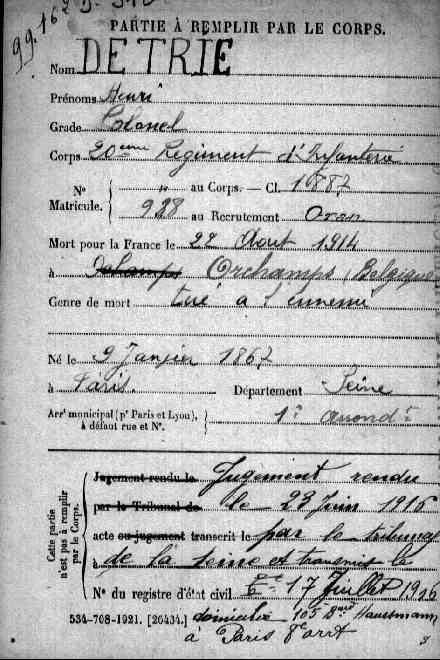 PARTIE À REMPLIR PAR LE CORPS.
Nom DETRIE
Prénoms Henri
Grade Colonel
Corps 20ème Régiment d'Infanterie
N° Matricule. { " au Corps. — Cl. 1887
928 au Recrutement Oran
Mort pour la France le 22 Aout 1914
à Orchamps (Belgique
Genre de mort tué à l'ennemi
Né le 9 Janvier 1867
à Paris. Département Seine
Arr¹ municipal (pʳ Paris et Lyon), à défaut rue et N°. } 1er arrondt
Cette partie n'est pas à remplir par le Corps.
Jugement rendu le Jugement rendu
par le Tribunal de le 23 Juin 1916
acte ou jugement transcrit le par le tribunal
à de la Seine et transmis le
N° du registre d'état civil 17 Juillet 1916
534-708-1921. [26434.] domicilié 105 Bard Haussmann
à Paris 8 arrt